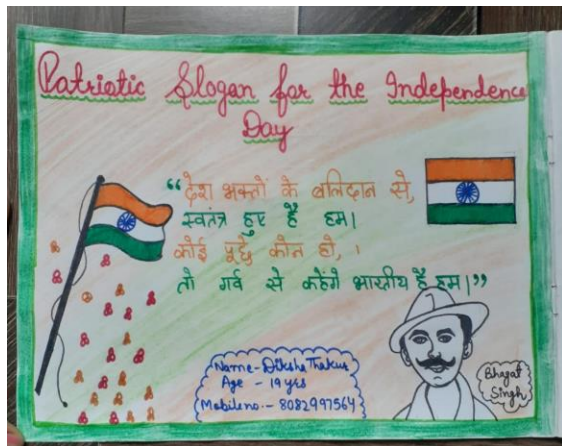 Patriotic Slogan for the Independence
Day
“देश भक्तों के बलिदान से,
स्वतंत्र हुए हैं हम।
कोई पूछे कौन हो, ।
तो गर्व से कहेंगे भारतीय हैं हम।”
Name - Diksha Thakur
Age - 19 yrs
Mobile no. - 8082997564
Bhagat
Singh